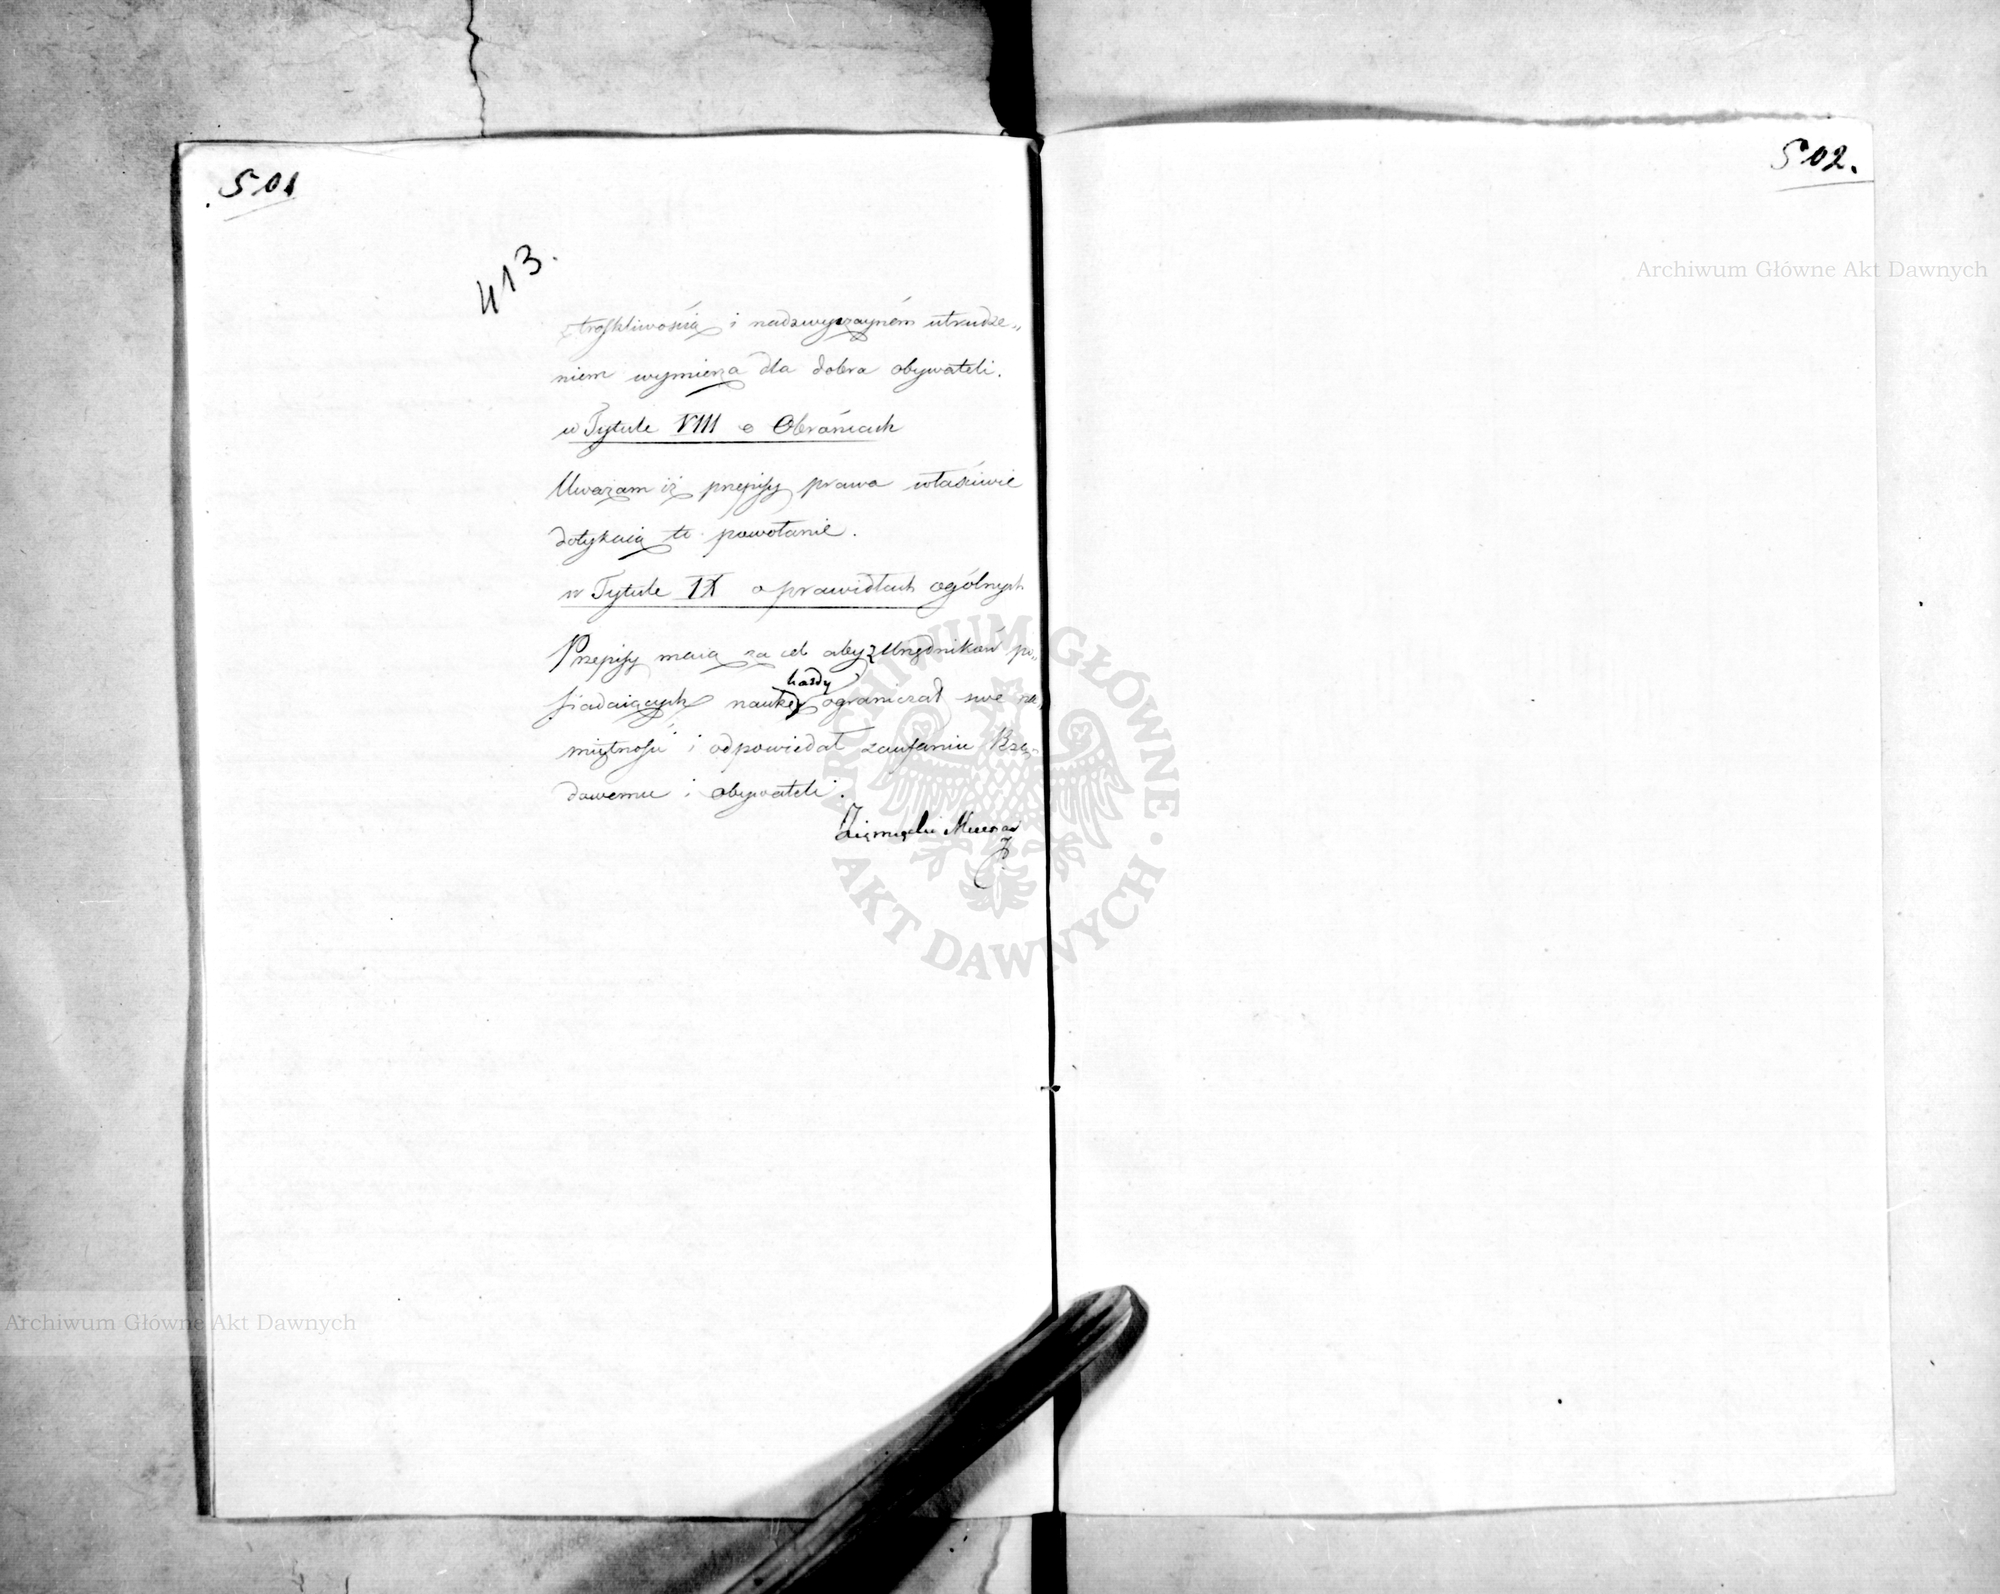 501
413.
z troskliwością i nadzwyczaynem utrudze-
niem wymierza dla dobra obywateli.
w Tytule VIII o Obrońcach
Uważam iż przepisy prawa właściwie
dotykaią to powołanie.
w Tytule IX o prawidłach ogólnych
Przepisy maią za cel aby z Urzędników po-
siadaiących naukę każdy ograniczał swe na-
miętności i odpowiedał zaufaniu Rzą-
dowemu i obywateli.
502.
Archiwum Główne Akt Dawnych
ARCHIWUM GŁÓWNE AKT DAWNYCH
Archiwum Główne Akt Dawnych